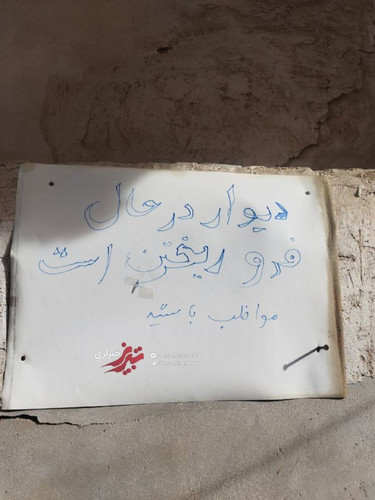 دیوار در حال
فرو ریختن است
مواظب باشید
تبریز خبرلری